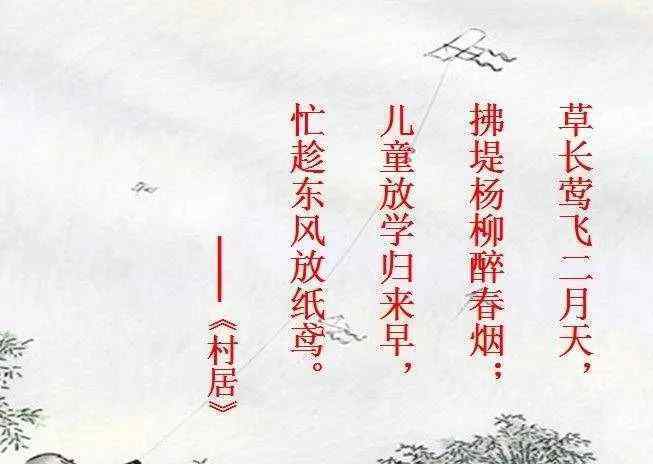 草长莺飞二月天，
拂堤杨柳醉春烟；
儿童放学归来早，
忙趁东风放纸鸢。
——《村居》